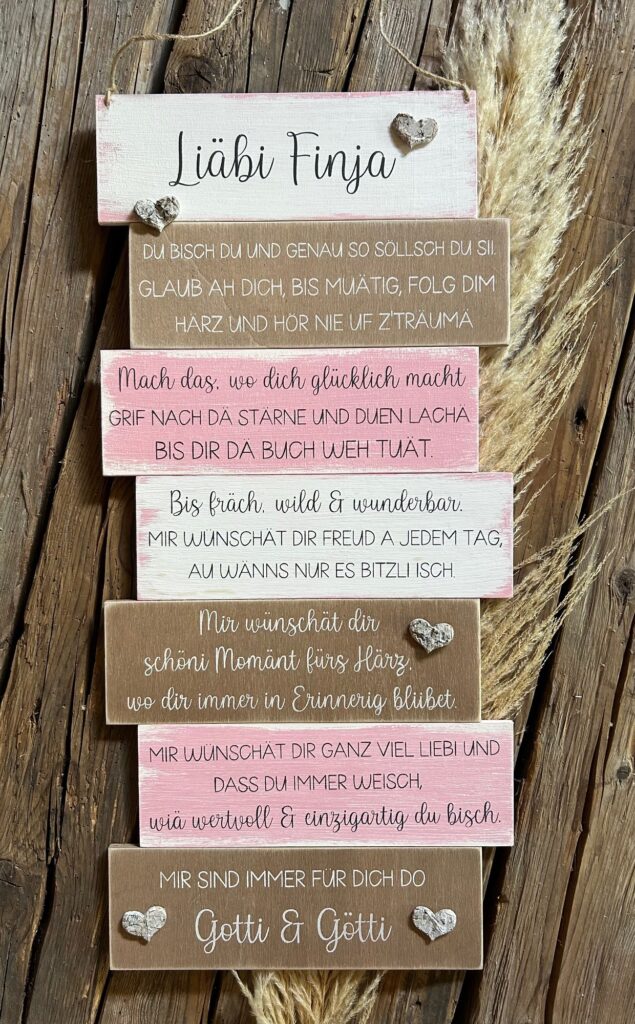 Liäbi Finja
DU BISCH DU UND GENAU SO SÖLLSCH DU SII.
GLAUB AH DICH, BIS MUÄTIG, FOLG DIM
HÄRZ UND HÖR NIE UF Z'TRÄUMÄ
Mach das, wo dich glücklich macht
GRIF NACH DÄ STÄRNE UND DUEN LACHA
BIS DIR DÄ BUCH WEH TUÄT.
Bis fräch, wild & wunderbar.
MIR WÜNSCHÄT DIR FREUD A JEDEM TAG,
AU WÄNNS NUR ES BITZLI ISCH.
Mir wünschät dir
schöni Momänt fürs Härz,
wo dir immer in Erinnerig bliibet.
MIR WÜNSCHÄT DIR GANZ VIEL LIEBI UND
DASS DU IMMER WEISCH,
wiä wertvoll & einzigartig du bisch.
MIR SIND IMMER FÜR DICH DO
Gotti & Götti